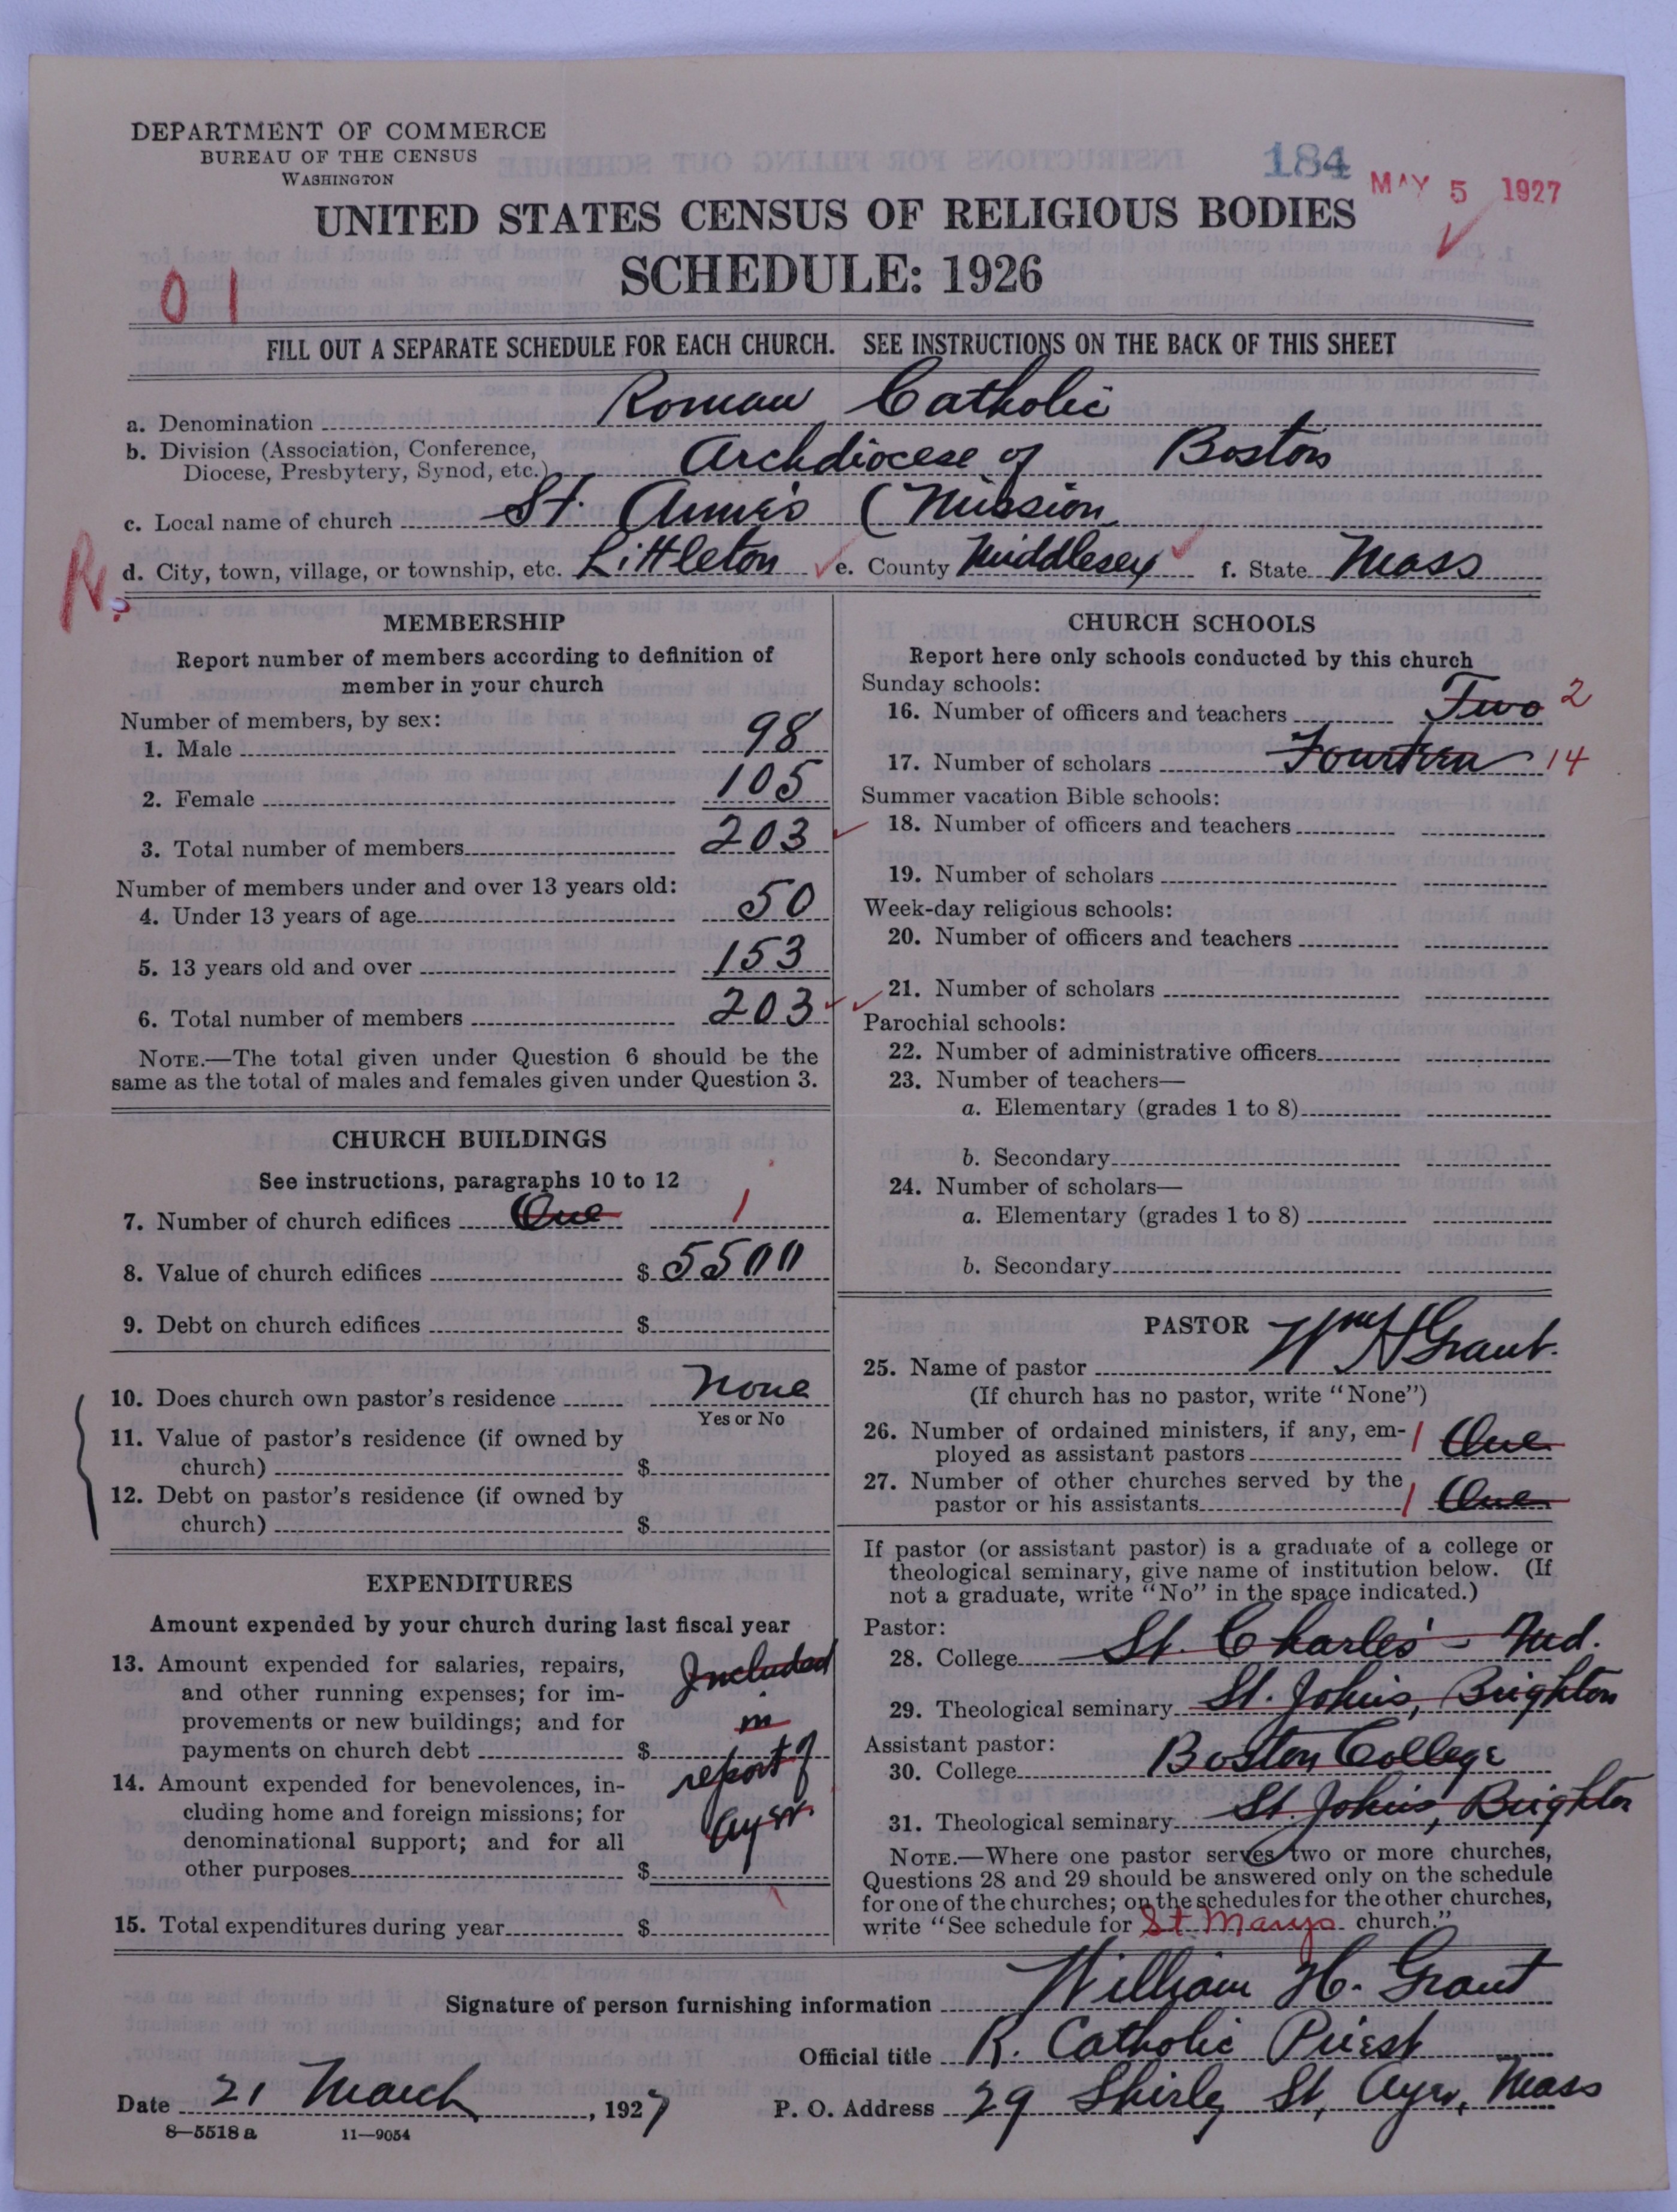 DEPARTMENT OF COMMERCE
BUREAU OF THE CENSUS
WASHINGTON
184
MAY 5 1927
UNITED STATES CENSUS OF RELIGIOUS BODIES
SCHEDULE: 1926
01
FILL OUT A SEPARATE SCHEDULE FOR EACH CHURCH. SEE INSTRUCTIONS ON THE BACK OF THIS SHEET
a. Denomination Roman Catholic
b. Division (Association, Conference,
Diocese, Presbytery, Synod, etc.) Archdiocese of Boston
c. Local name of church St. Anne's (Mission
d. City, town, village, or township, etc. Littleton e. County Middlesex f. State Mass
R.
MEMBERSHIP
Report number of members according to definition of
member in your church
Number of members, by sex:
1. Male 98
2. Female 105
3. Total number of members 203
Number of members under and over 13 years old:
4. Under 13 years of age 50
5. 13 years old and over 153
6. Total number of members 203
NOTE.—The total given under Question 6 should be the
same as the total of males and females given under Question 3.
CHURCH BUILDINGS
See instructions, paragraphs 10 to 12
7. Number of church edifices One 1
8. Value of church edifices $ 5500
9. Debt on church edifices $
10. Does church own pastor's residence None
Yes or No
11. Value of pastor's residence (if owned by
church) $
12. Debt on pastor's residence (if owned by
church) $
EXPENDITURES
Amount expended by your church during last fiscal year
13. Amount expended for salaries, repairs, Included
and other running expenses; for im-
provements or new buildings; and for in
payments on church debt $ report of
14. Amount expended for benevolences, in-
cluding home and foreign missions; for Ayer
denominational support; and for all
other purposes $
15. Total expenditures during year $
CHURCH SCHOOLS
Report here only schools conducted by this church
Sunday schools:
16. Number of officers and teachers Two 2
17. Number of scholars Fourteen 14
Summer vacation Bible schools:
18. Number of officers and teachers
19. Number of scholars
Week-day religious schools:
20. Number of officers and teachers
21. Number of scholars
Parochial schools:
22. Number of administrative officers
23. Number of teachers—
a. Elementary (grades 1 to 8)
b. Secondary
24. Number of scholars—
a. Elementary (grades 1 to 8)
b. Secondary
PASTOR
25. Name of pastor Wm H Grant.
(If church has no pastor, write "None")
26. Number of ordained ministers, if any, em-
ployed as assistant pastors 1 One
27. Number of other churches served by the
pastor or his assistants 1 One
If pastor (or assistant pastor) is a graduate of a college or
theological seminary, give name of institution below. (If
not a graduate, write "No" in the space indicated.)
Pastor:
28. College St. Charles' - Md.
29. Theological seminary St. John's, Brighton
Assistant pastor:
30. College Boston College
31. Theological seminary St. John's, Brighton
NOTE.—Where one pastor serves two or more churches,
Questions 28 and 29 should be answered only on the schedule
for one of the churches; on the schedules for the other churches,
write "See schedule for St Marys church."
Signature of person furnishing information William H. Grant
Official title R. Catholic Priest
Date 21 March, 1927 P. O. Address 29 Shirley St, Ayer, Mass
8—5518 a 11—9054